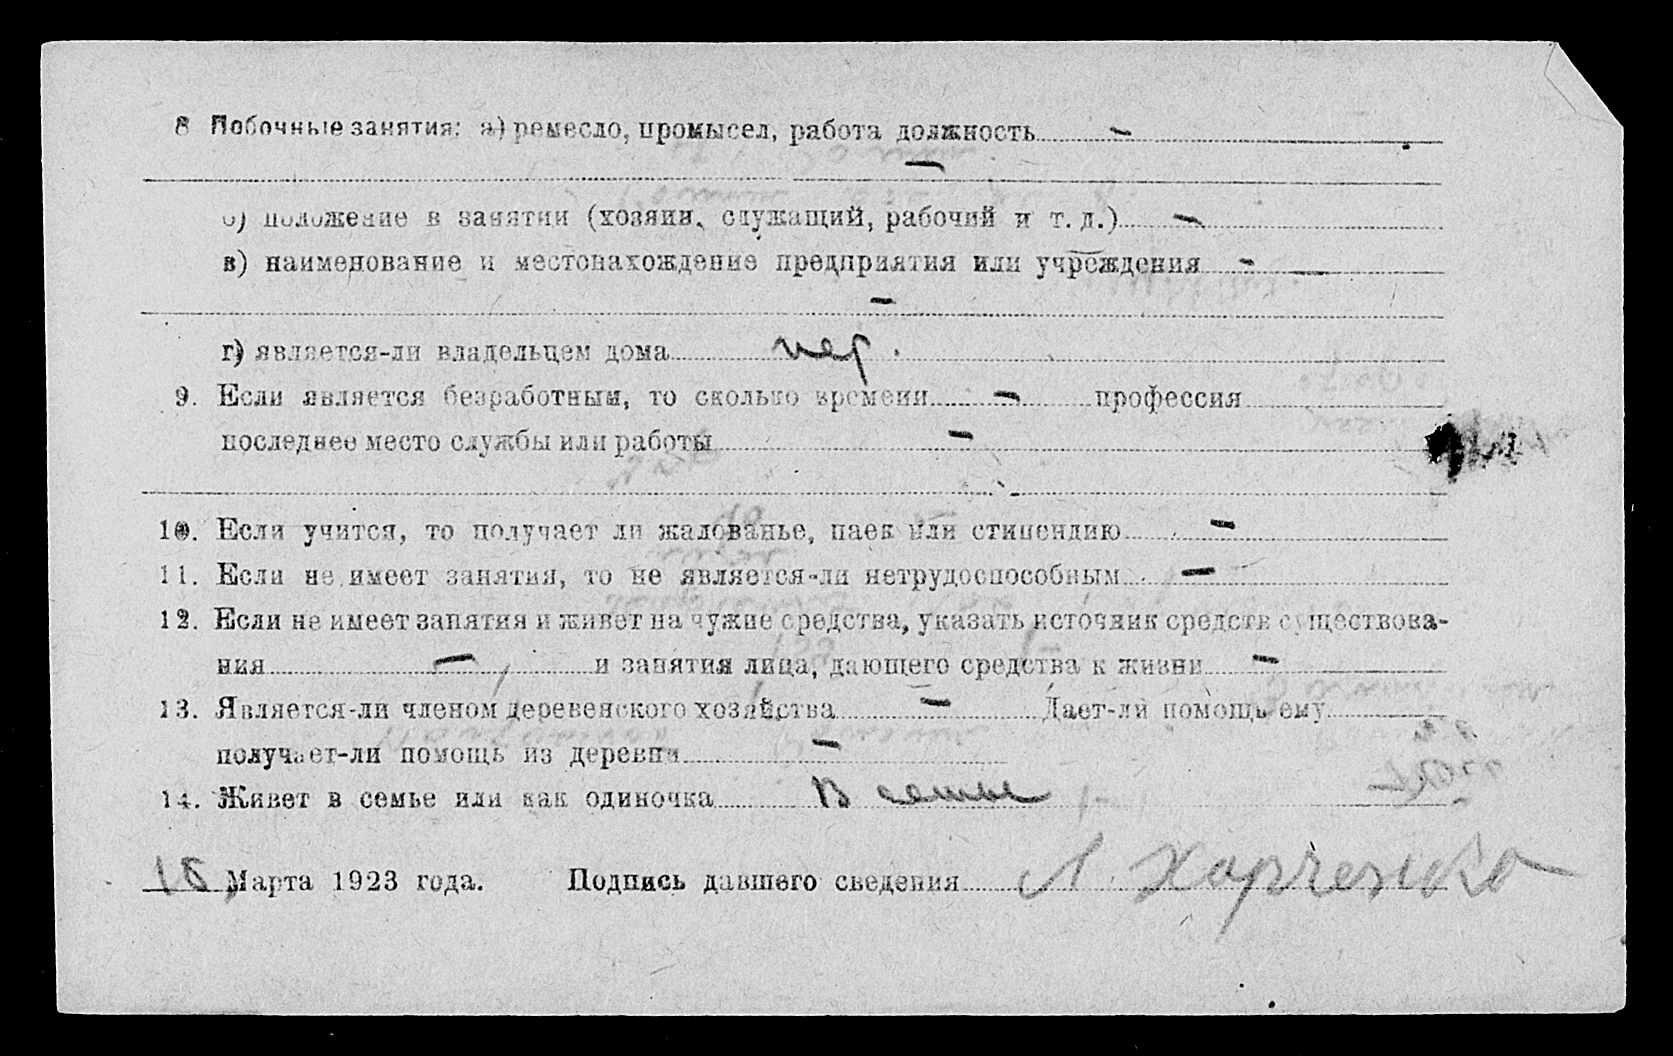 8 Побочные занятия: а) ремесло, промысел, работа должность —
—
б) положение в занятии (хозяин, служащий, рабочий и т. д.) —
в) наименование и местонахождение предприятия или учреждения - —
—
г) является-ли владельцем дома
9. Если является безработным, то сколько времени — профессия
последнее место службы или работы —
10. Если учится, то получает ли жалованье, паек или стипендию —
11. Если не имеет занятия, то не является-ли нетрудоспособным —
12. Если не имеет занятия и живет на чужие средства, указать источник средств существова-
ния — и занятия лица, дающего средства к жизни —
13. Является-ли членом деревенского хозяйства — Дает-ли помощь ему
получает-ли помощь из деревни —
14. Живет в семье или как одиночка В семье
Марта 1923 года. Подпись давшего сведения Л Харченко